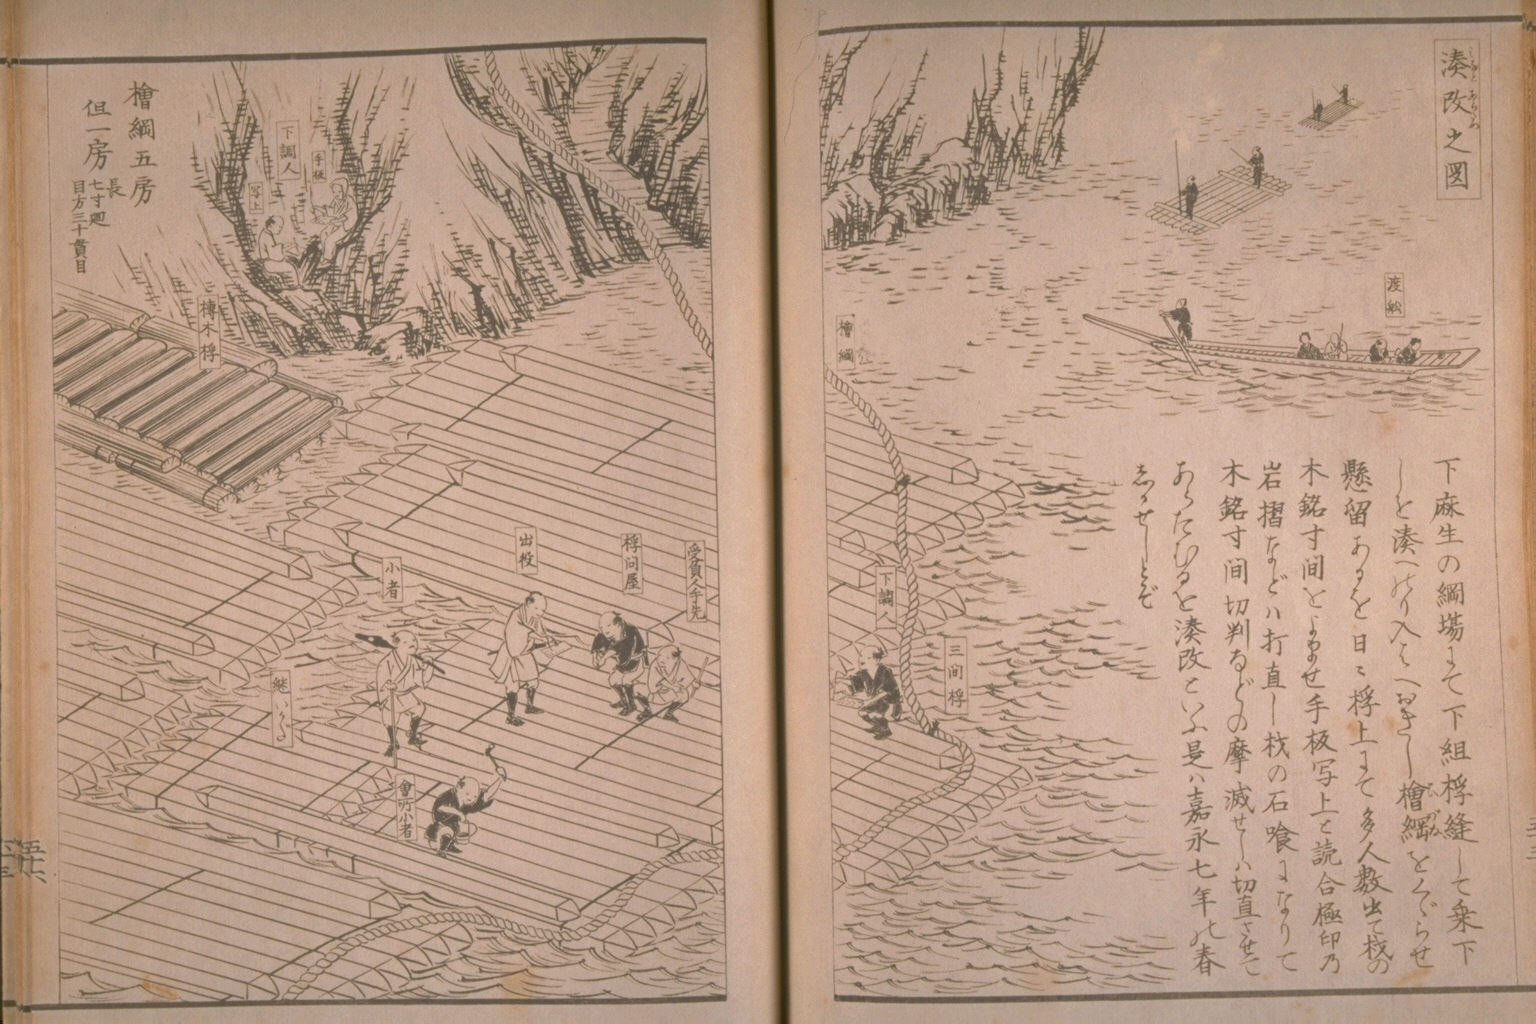 湊改之図
渡舩
下麻生の綱場まて下組桴縫して乗下
しを湊へのり入もへおきし檜綱をくゞらせ
懸留あるを日々桴上まて多人数出て材の
木銘寸間をよませ手板写上と読合極印乃
岩摺などハ打直し材の石喰まなりて
木銘寸间切判るどの摩滅せしハ切直させて
あらたむるを湊改といふ是ハ嘉永七年の春
しるせしとぞ
檜綱
下調人
三间桴
檜綱五房
但一房
長
七寸廻
目方三十貫目
下調人
手板
写上
榑木桴
受負人手先
桴问屋
出役
小者
會所小者